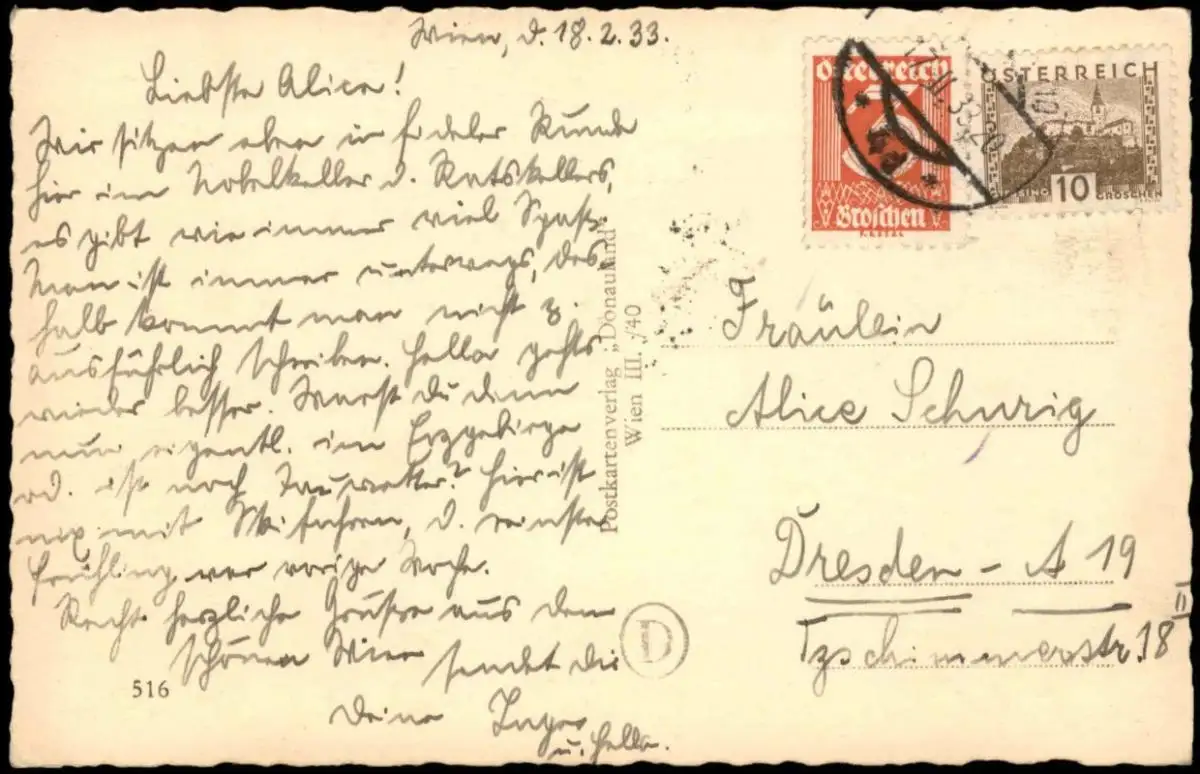 Wien, d. 18.2.33.
Liebste Alice!
Wir sitzen eben in fideler Runde
hier im Nobelkeller d. Ratskellers,
es gibt wie immer viel Spaß.
Man ist immer unterwegs, des-
halb kommt man nicht z.
ausführlich schreiben. Hella gehts
wieder besser. Warst Du denn
nun eigentl. im Erzgebirge
od. ist noch Tauwetter? Hier ist
nix mit Skifahren, d. reinste
Frühling war vorige Woche.
Recht herzliche Grüsse aus dem
schönen Wien sendet dir
Deine Inge
u. Hella.
516
Postkartenverlag „Donauland"
Wien III. /40
D
Österreich
5
Groschen
ÖSTERREICH
10
GROSCHEN
Fräulein
Alice Schurig
Dresden - A 19
Tzschimmerstr. 18 II